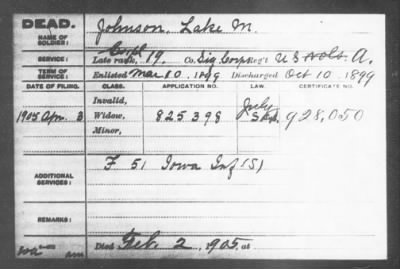 DEAD.
NAME OF SOLDIER:
Johnson, Lake M.
SERVICE:
Corpl
Late rank, 19. Co. Sig. Corps Reg't U S Vols. A.
TERM OF SERVICE:
Enlisted Mar 10, 1899 Discharged Oct 10, 1899
DATE OF FILING. CLASS. APPLICATION NO. LAW. CERTIFICATE NO.
Invalid,
1905 Apr. 3 Widow, 825,398 July 928,050
Minor,
ADDITIONAL SERVICES:
F 51 Iowa Inf (S)
REMARKS:
Died Feb. 2, 1905, at